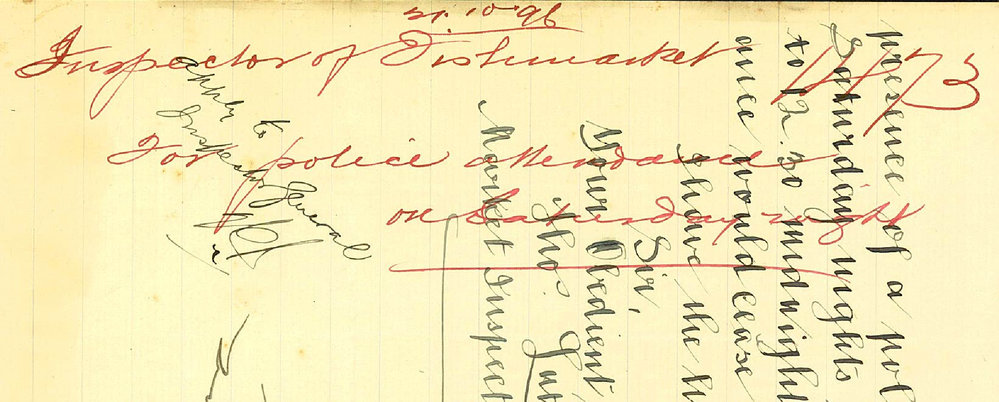 21.10.96
Inspector of Fishmarket
1473
For police attendance
on Saturday night
apply to
Inspector General
presence of a pol
Saturday nights
to 12.30 midnight
ance would cease
I have the h
Sir,
Your Obedient
Thos.
Market Inspect